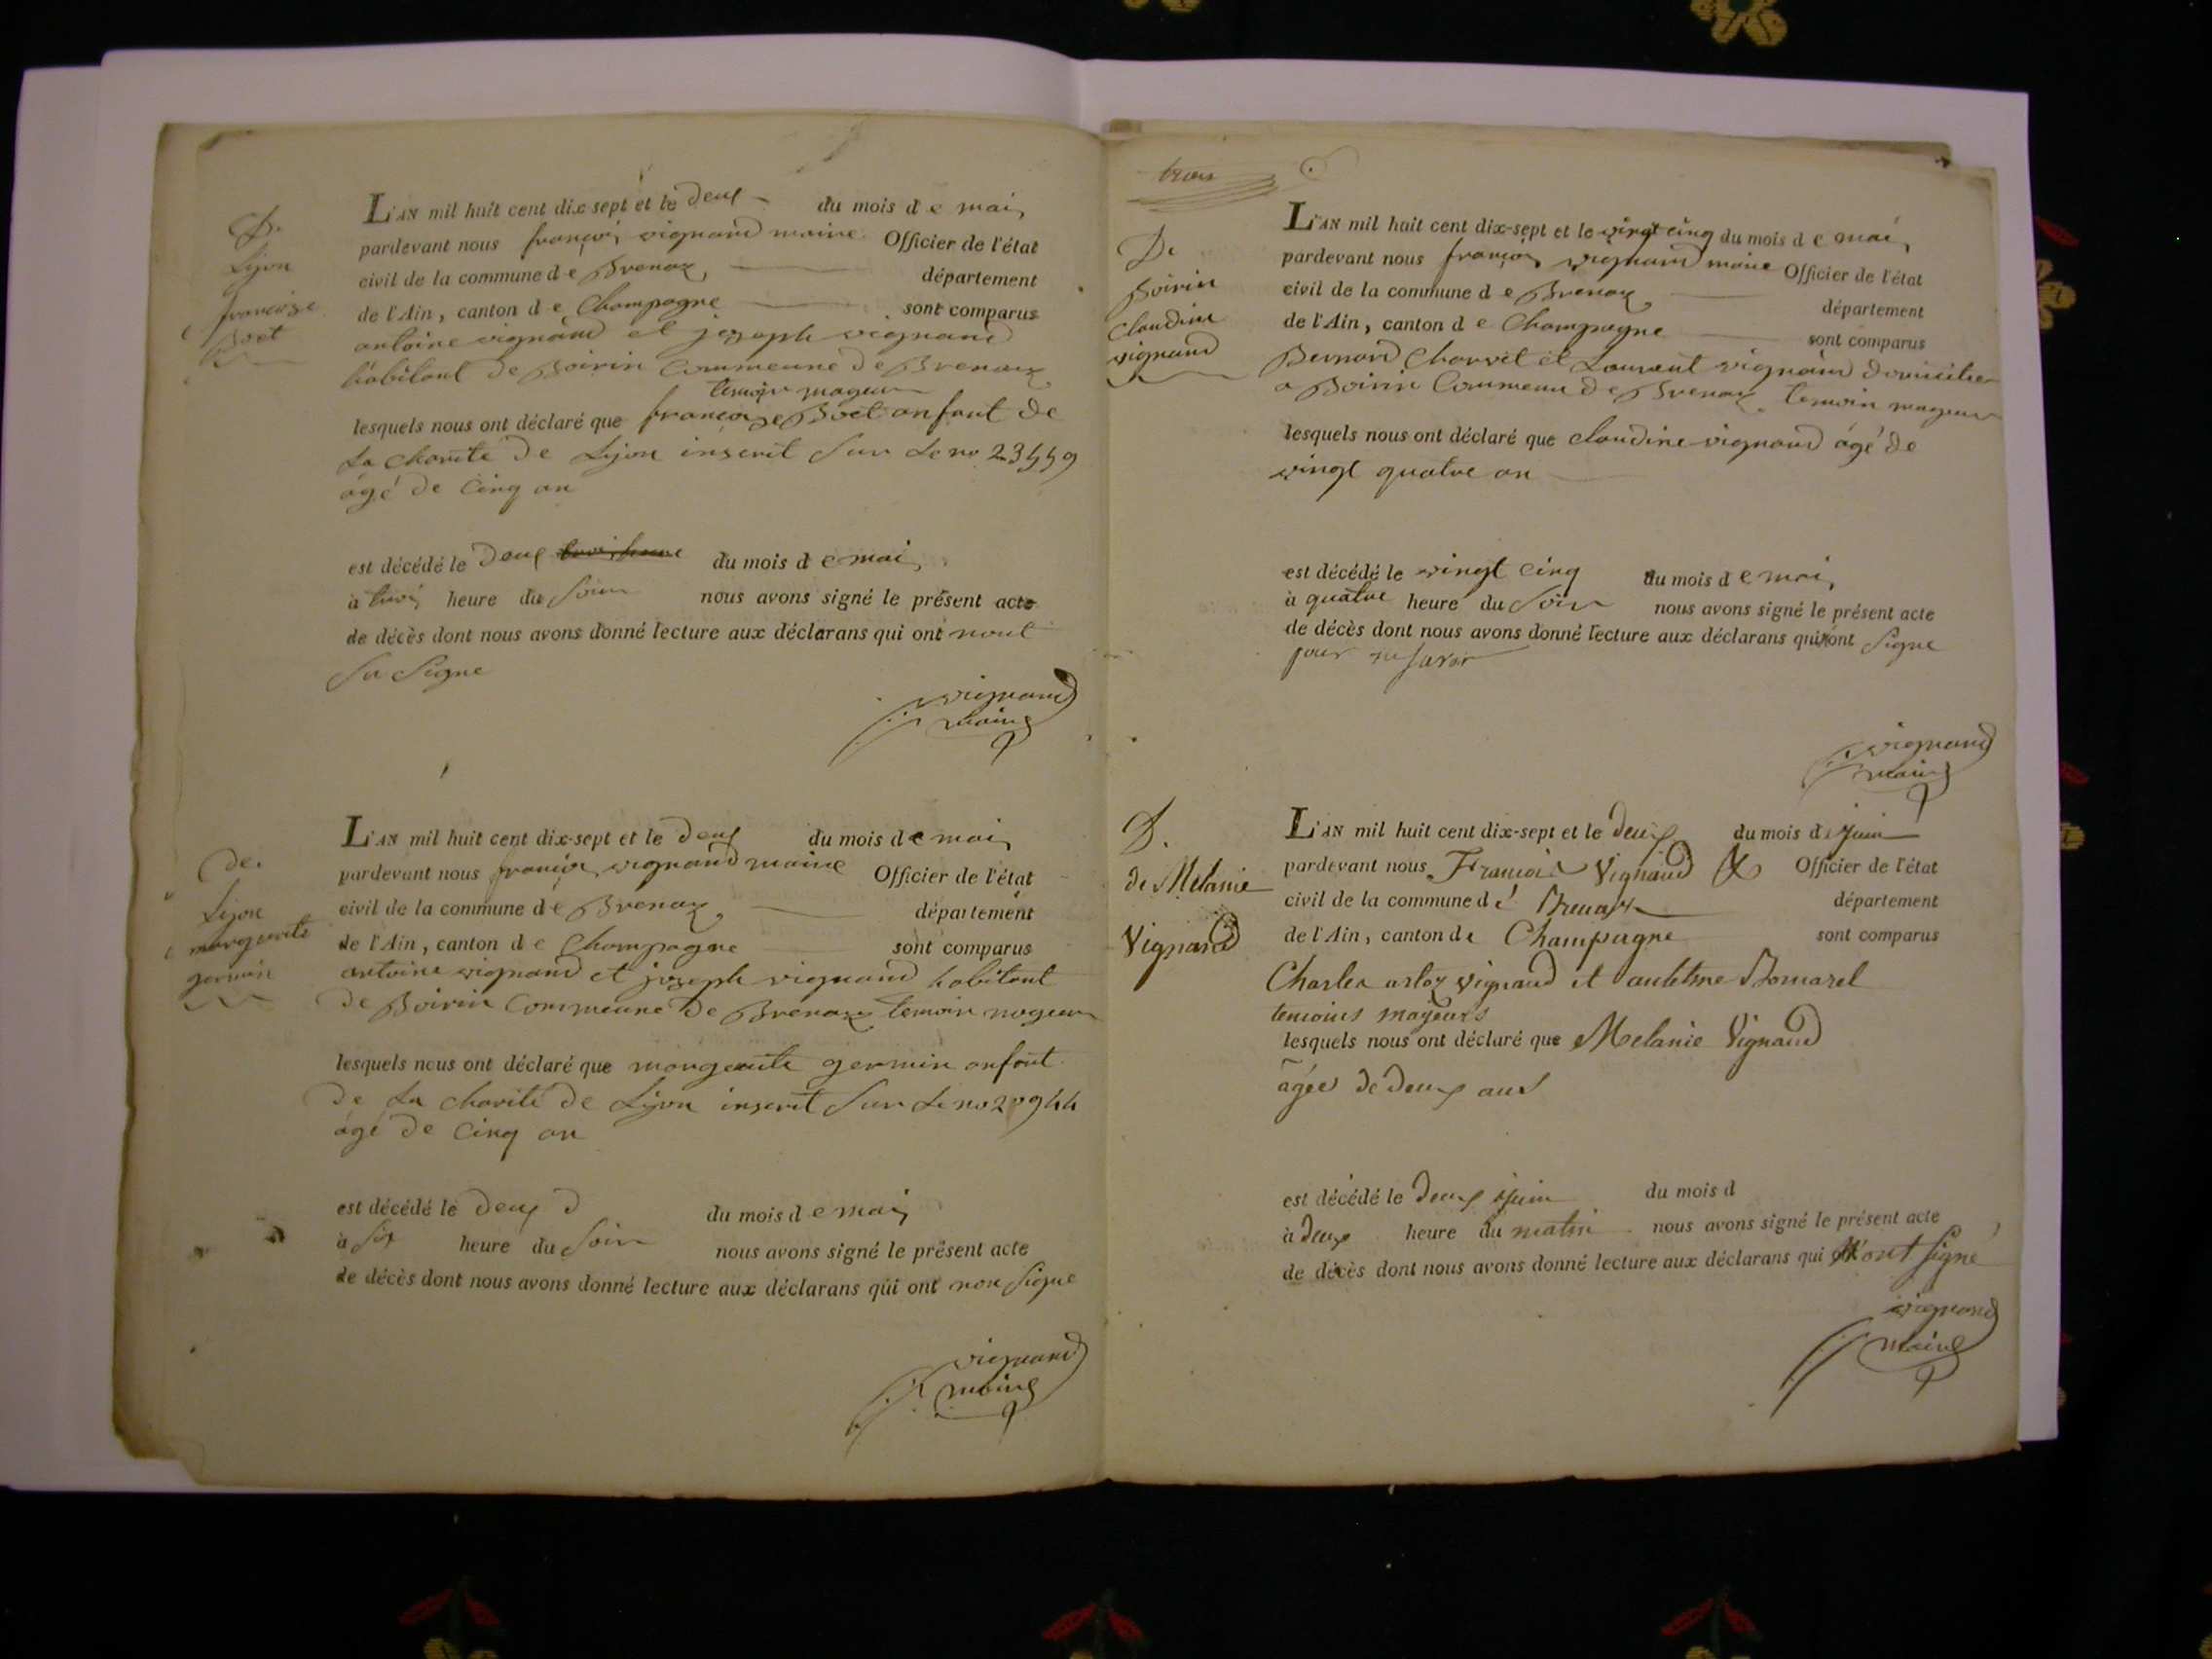 De
Lijon
francoize
Boet
L'AN mil huit cent dix sept et le deux du mois de mai
pardevant nous françois vignand maire Officier de l'état
civil de la commune de Brenaz, département
de l'Ain, canton de Champagne sont comparus
antoine vignand et jozeph vignand
habitant de Boirin Commeune de Brenaz
temoin mageur
lesquels nous ont déclaré que francoize Boet anfant de
La charité de Lijon inscrit Sur Le no
âgé de Cinq an
est décédé le deux du mois de mai
à trois heure du Soir nous avons signé le présent acte
de décès dont nous avons donné lecture aux déclarans qui ont nout
Su Signe
vignand
maire
de
Lijon
marguerite
germin
L'AN mil huit cent dix-sept et le deux du mois de mai
pardevant nous françois vignand maire Officier de l'état
civil de la commune de Brenaz département
de l'Ain, canton de Champagne sont comparus
antoine vignand et jozeph vignand habitant
de Boirin Commeune de Brenaz temoin mageur
lesquels nous ont déclaré que marguerite germin anfant
de La charité de Lijon inscrit Sur Le no 20944
âgé de Cinq an
est décédé le deux du mois de mai
à Six heure du Soir nous avons signé le présent acte
de décès dont nous avons donné lecture aux déclarans qui ont non Signe
vignand
maire
trois
De
Boirin
Claudine
vignand
L'AN mil huit cent dix-sept et le vingt cinq du mois de mai
pardevant nous françois vignand maire Officier de l'état
civil de la commune de Brenaz département
de l'Ain, canton de Champagne sont comparus
Bernard Charvet et Laurent vignand domicilier
a Boirin Commeune de Brenaz temoin mageur
lesquels nous ont déclaré que claudine vignand âgé de
vingt quatre an
est décédé le vingt cinq du mois de mai
à quatre heure du Soir nous avons signé le présent acte
de décès dont nous avons donné lecture aux déclarans qui ont Signe
pour ne savoir
vignand
maire
D.
de Melanie
Vignand
L'AN mil huit cent dix-sept et le deux du mois de Juin
pardevant nous François Vignand Officier de l'état
civil de la commune de Brenaz département
de l'Ain, canton de Champagne sont comparus
Charles Vignand et
temoins mageurs
lesquels nous ont déclaré que Melanie Vignand
âgée de deux ans
est décédé le deux Juin du mois d
à deux heure du matin nous avons signé le présent acte
de décès dont nous avons donné lecture aux déclarans qui N'ont Signé
vignand
maire